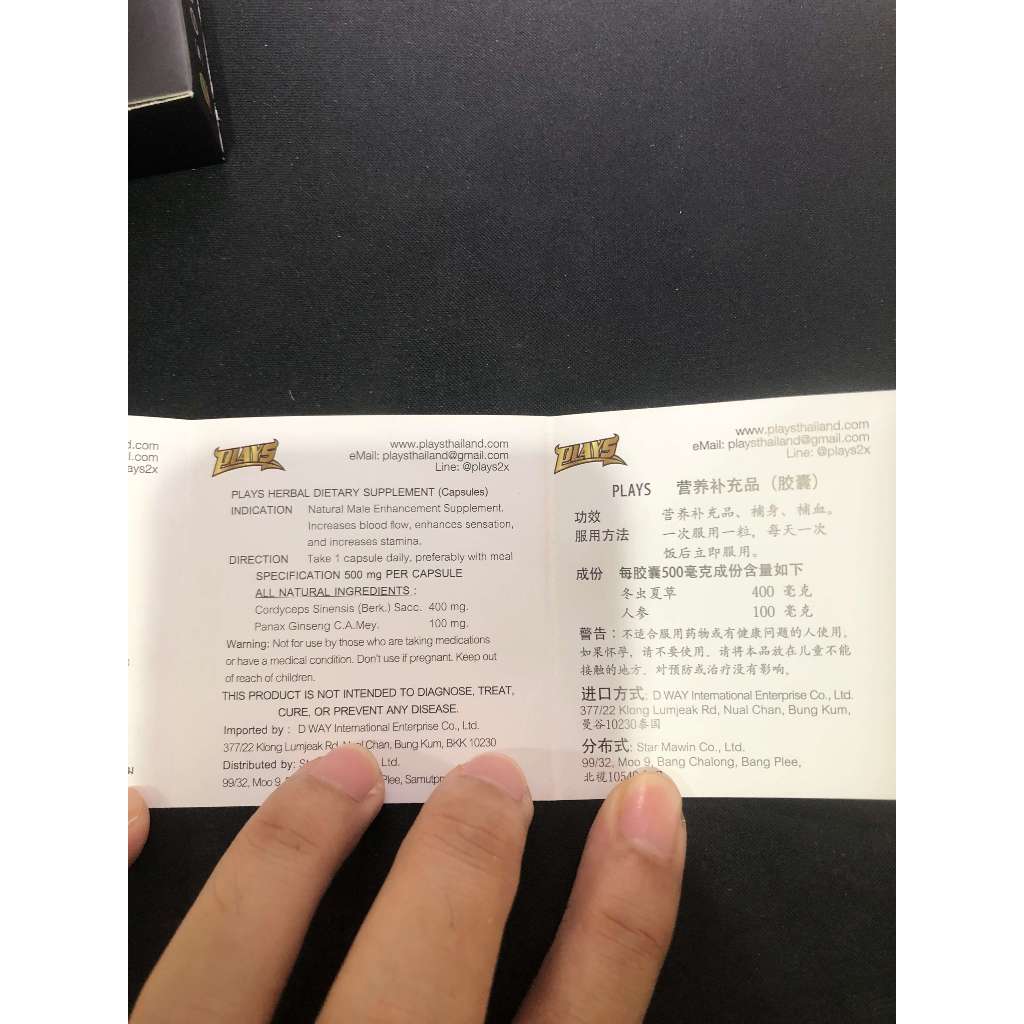 .com
l.com
ays2x
PLAYS
www.playsthailand.com
eMail: playsthailand@gmail.com
Line: @plays2x
PLAYS HERBAL DIETARY SUPPLEMENT (Capsules)
INDICATION Natural Male Enhancement Supplement.
Increases blood flow, enhances sensation,
and increases stamina.
DIRECTION Take 1 capsule daily, preferably with meal
SPECIFICATION 500 mg PER CAPSULE
ALL NATURAL INGREDIENTS :
Cordyceps Sinensis (Berk.) Sacc. 400 mg.
Panax Ginseng C.A.Mey. 100 mg.
Warning: Not for use by those who are taking medications
or have a medical condition. Don't use if pregnant. Keep out
of reach of children.
THIS PRODUCT IS NOT INTENDED TO DIAGNOSE, TREAT,
CURE, OR PREVENT ANY DISEASE.
Imported by : D WAY International Enterprise Co., Ltd.
377/22 Klong Lumjeak Rd, Nual Chan, Bung Kum, BKK 10230
Distributed by: Ltd.
99/32, Moo 9,
PLAYS
www.playsthailand.com
eMail: playsthailand@gmail.com
Line: @plays2x
PLAYS 营养补充品（胶囊）
功效 营养补充品、補身、補血。
服用方法 一次服用一粒，每天一次
饭后立即服用。
成份 每胶囊500毫克成份含量如下
冬虫夏草 400 毫克
人参 100 毫克
警告：不适合服用药物或有健康问题的人使用。
如果怀孕，请不要使用。请将本品放在儿童不能
接触的地方。对预防或治疗没有影响。
进口方式: D WAY International Enterprise Co., Ltd.
377/22 Klong Lumjeak Rd, Nual Chan, Bung Kum,
曼谷10230泰国
分布式: Star Mawin Co., Ltd.
99/32, Moo 9, Bang Chalong, Bang Plee,
北榄10540